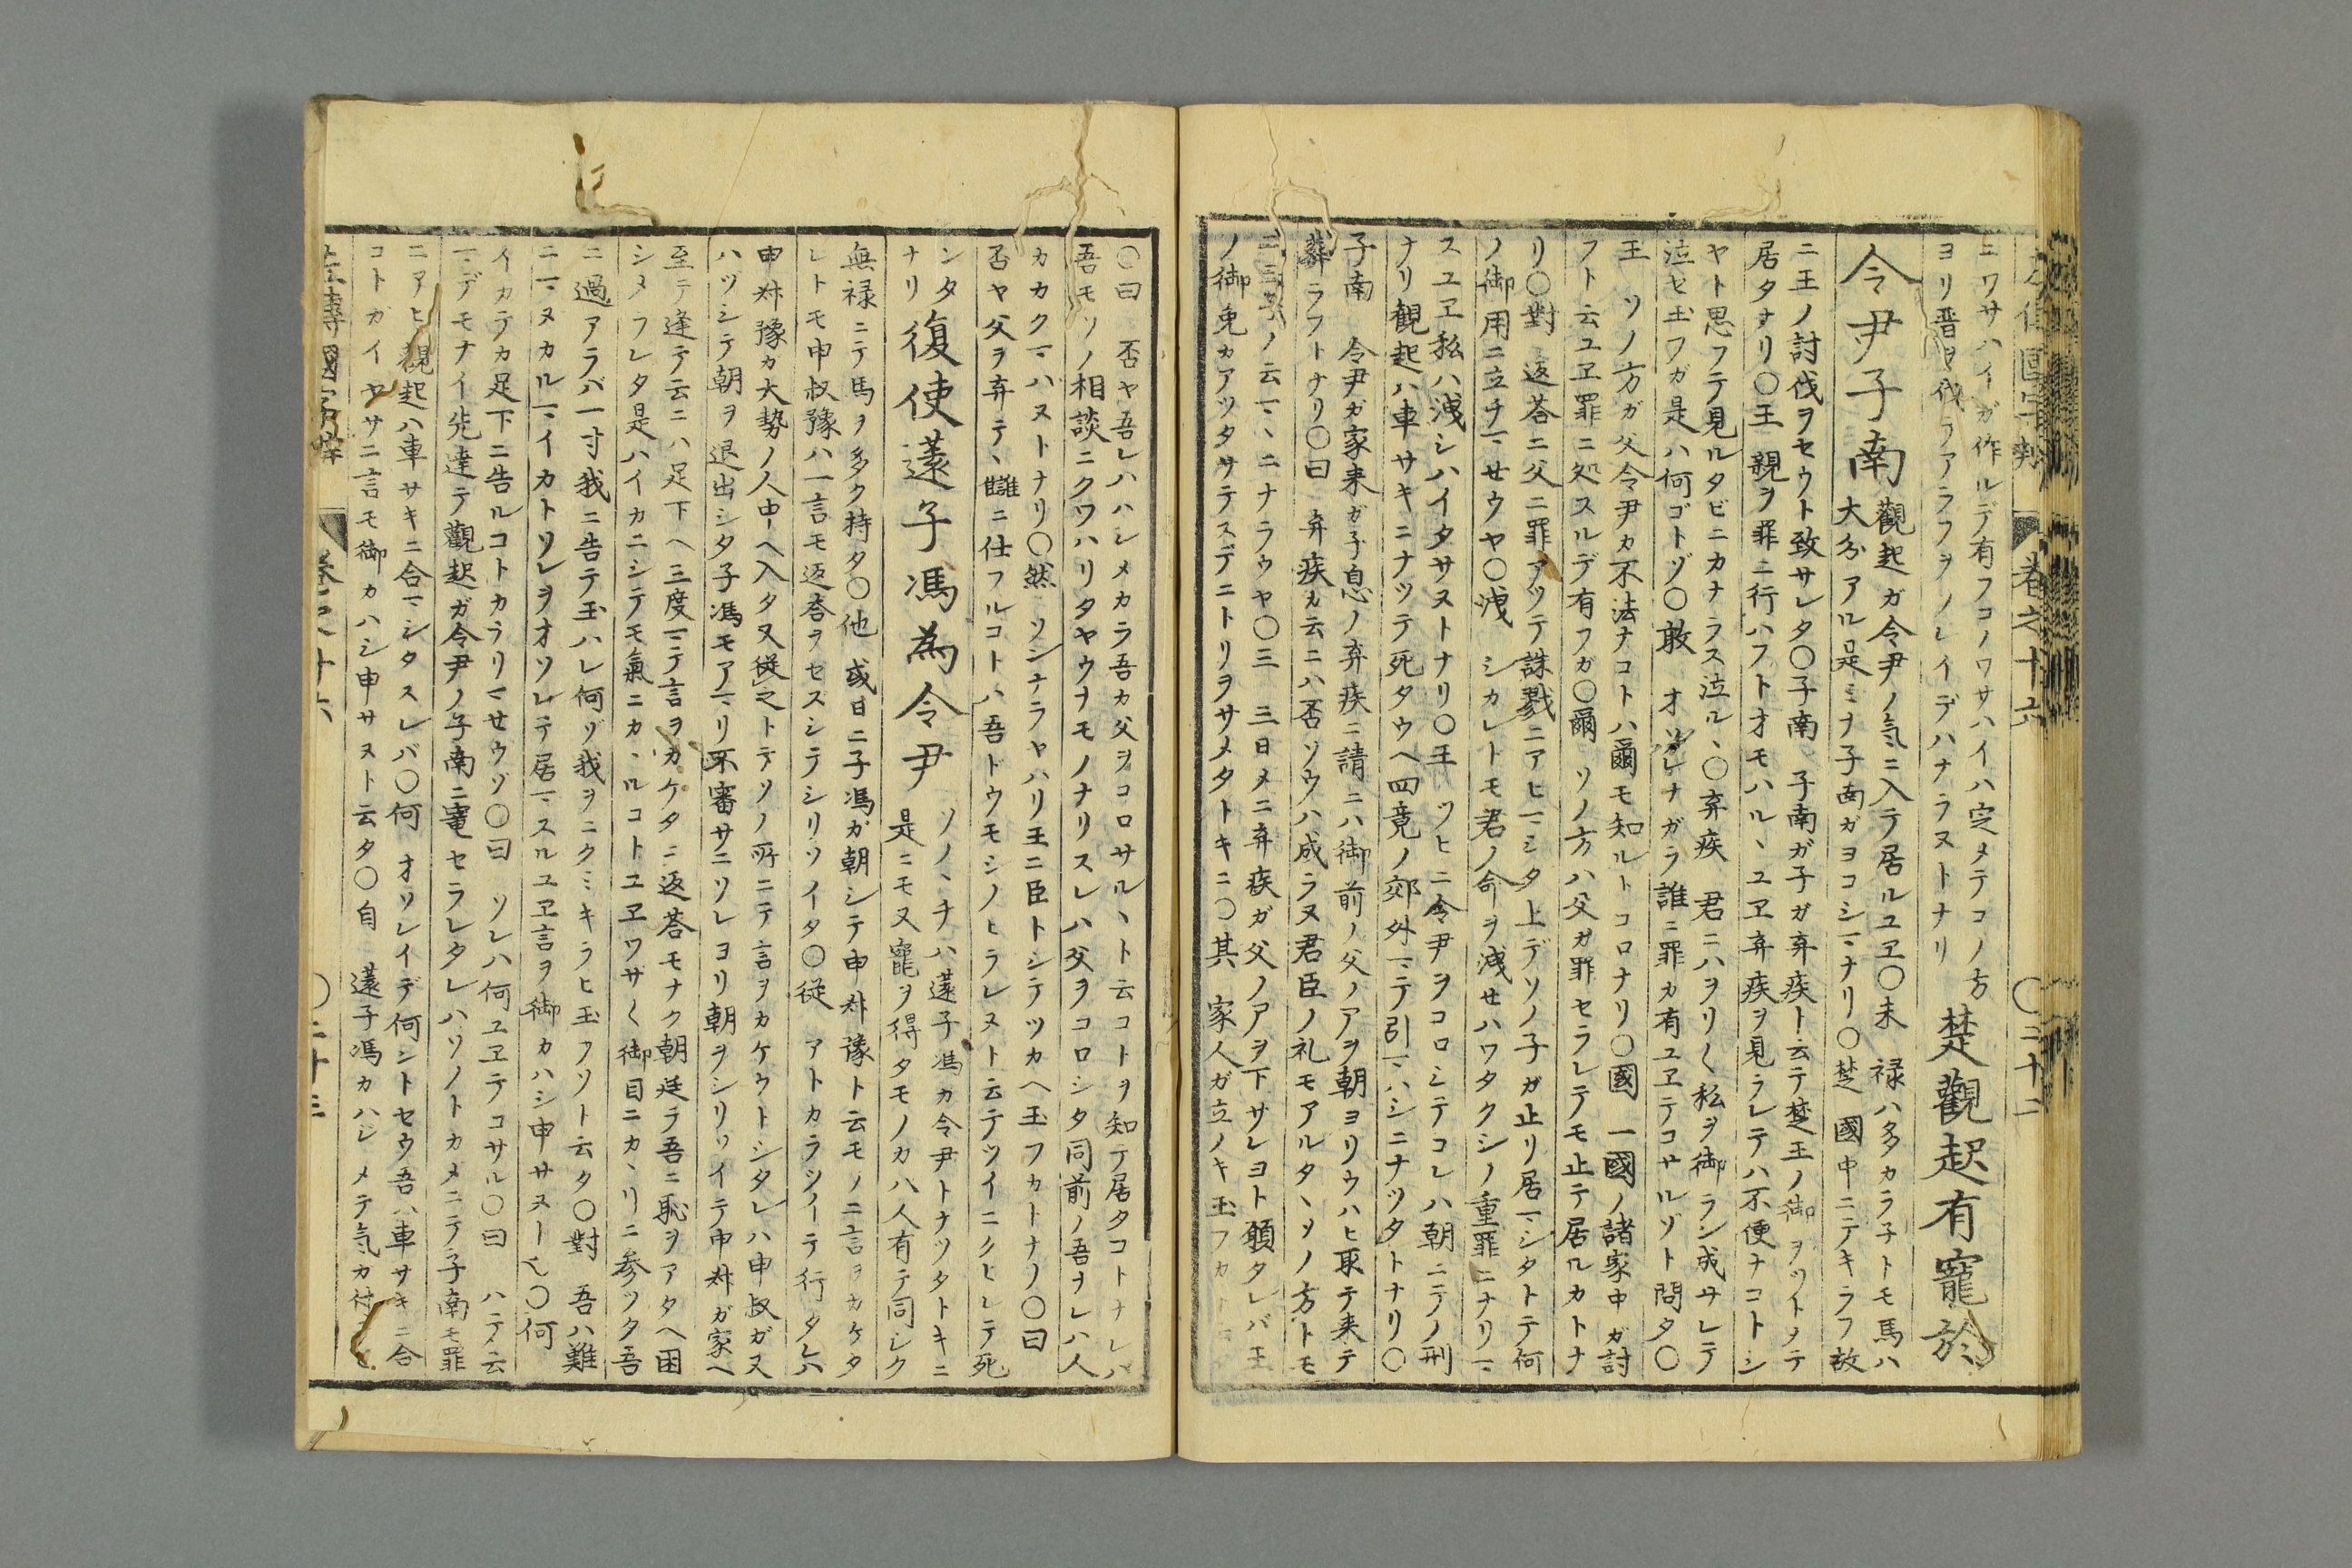 ニワサハイガ作ルデ有フコノワサハイハ定メテコノ方
ヨリ晋ヲ伐ラアラフヲノレイデハナラヌトナリ
楚觀起有寵於
令尹子南
觀起ガ令尹ノ気ニ入テ居ルユヱ〇未 禄ハ多カラ子トモ馬ハ
大分アル是ミナ子南ガヨコシマナリ〇楚 國中ニテキラフ故
ニ王ノ討伐ヲセウト致サレタ〇子南 子南ガ子ガ弃疾ト云テ楚王ノ御ヲツトメテ
居タナリ〇王 親ヲ罪ニ行ハフトオモハルヽユヱ弃疾ヲ見ラレテハ不便ナコトシ
ヤト思フテ見ルタビニカナラス泣ルヽ〇弃疾 君ニハヲリ〱私ヲ御ラン成サレテ
泣セ玉フガ是ハ何ゴトゾ〇敢 オソレナガラ誰ニ罪カ有ユヱテコサルゾト問タ〇
王 ソノ方ガ父令尹カ不法ナコトハ爾モ知ルトコロナリ〇國 一國ノ諸家中ガ討
フト云ユヱ罪ニ処スルデ有フガ〇爾 ソノ方ハ父ガ罪セラレテモ止テ居ルカトナ
リ〇對 返荅ニ父ニ罪アツテ誅戮ニアヒマシタ上デソノ子ガ止リ居マシタトテ何
ノ御用ニ立チマセウヤ〇洩 シカレトモ君ノ命ヲ洩セハワタクシノ重罪ニナリマ
スユヱ私ハ洩シハイタサヌトナリ〇王 ツヒニ令尹ヲコロシテコレハ朝ニテノ刑
ナリ觀起ハ車サキニナツテ死タウヘ四竟ノ郊外マテ引マハシニナツタトナリ〇
子南 令尹ガ家来ガ子息ノ弃疾ニ請ニハ御前ノ父ノアヲ朝ヨリウハヒ取テ来テ
葬ラフトナリ〇曰 弃疾カ云ニハ否ソウハ成ラヌ君臣ノ礼モアルタヽソノ方トモ
二三子ノ云マヽニナラウヤ〇三 三日メニ弃疾ガ父ノアヲ下サレヨト願タレバ王
ノ御免カアツタサテスデニトリヲサメタトキニ〇其 家人ガ立ノキ玉フカト
巻之十六
〇二十二
〇曰 否ヤ吾レハハシメカラ吾カ父ヲコロサルヽト云コトヲ知テ居タコトナレバ
吾モソノ相談ニクワハリタヤウナモノナリスレハ父ヲコロシタ同前ノ吾ナレハ人
カカクマハヌトナリ〇然 ソンナラヤハリ王ニ臣トシテツカヘ玉フカトナリ〇曰
否ヤ父ヲ弃テヽ讎ニ仕フルコトハ吾ドウモシノヒラレヌト云テツイニクヒレテ死
ンタ
ナリ
復使薳子馮為令尹
ソノヽチハ薳子馮カ令尹トナツタトキニ
是ニモ又寵ヲ得タモノカ八人有テ同シク
無禄ニテ馬ヲ多ク持タ〇他 或日ニ子馮ガ朝シテ申叔豫ト云モノニ言ヲカケタ
レトモ申叔豫ハ一言モ返荅ヲセスシテシリソイタ〇従 アトカラツイテ行タレハ
申叔豫カ大勢ノ人中ヘ入タ又従之トテソノ所ニテ言ヲカケウトシタレハ申叔ガ又
ハヅシテ朝ヲ退出シタ子馮モアマリ不審サニソレヨリ朝ヲシリソイテ申叔ガ家ヘ
至テ逢テ云ニハ足下ヘ三度マテ言ヲカケタニ返荅モナク朝廷テ吾ニ恥ヲアタヘ困
シメフレタ是ハイカニシテモ氣ニカヽルコトユヱワザ〱御目ニカヽリニ参ツタ吾
ニ過アラバ一寸我ニ告テ玉ハレ何ゾ我ヲニクミキラヒ玉フソト云タ〇對 吾ハ難
ニマヌカルマイカトソレヲオソレテ居マスルユヱ言ヲ御カハシ申サヌト也〇何
イカテカ足下ニ告ルコトカラリマセウゾ〇曰 ソレハ何ユヱテコサル〇曰 ハテ云
マデモナイ先達テ觀起ガ令尹ノ子南ニ寵セラレタレハソノトカメニテ子南モ罪
ニアヒ觀起ハ車サキニ合マシタスレバ〇何 オソレイデ何シトセウ吾ハ車サキニ合
コトカイヤサニ言モ御カハシ申サヌト云タ〇自 薳子馮カハジメテ気カ付
左傳國字辯
巻之十六
〇二十三